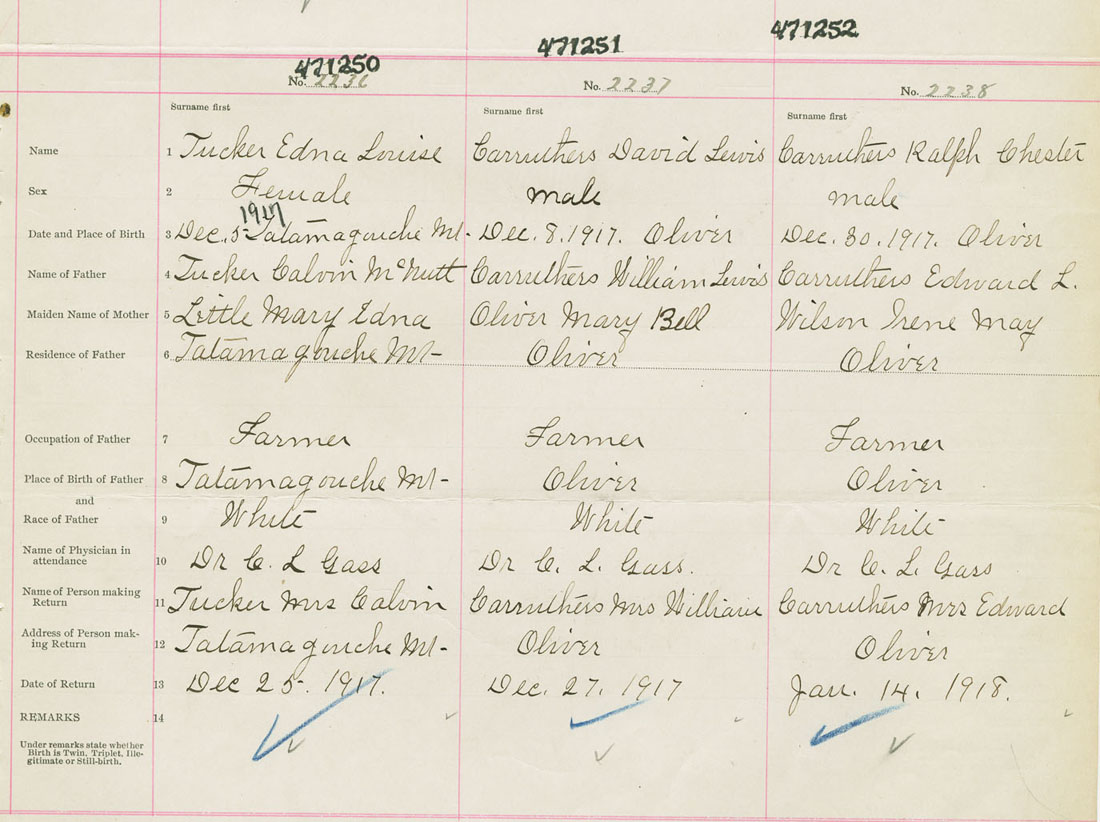 471250 471251 471252
No. 2236 No. 2237 No. 2238
Surname first Surname first Surname first
Name 1 Tucker Edna Louise Carruthers David Lewis Carruthers Ralph Chester
Sex 2 Female male male
1917
Date and Place of Birth 3 Dec. 5 Tatamagouche Mt- Dec. 8. 1917. Oliver Dec. 30. 1917. Oliver
Name of Father 4 Tucker Calvin McNutt Carruthers William Lewis Carruthers Edward L.
Maiden Name of Mother 5 Little Mary Edna Oliver Mary Bell Wilson Irene May
Residence of Father 6 Tatamagouche Mt- Oliver Oliver
Occupation of Father 7 Farmer Farmer Farmer
Place of Birth of Father 8 Tatamagouche Mt- Oliver Oliver
and
Race of Father 9 White White White
Name of Physician in
attendance 10 Dr C. L Gass Dr C. L. Gass. Dr C. L. Gass
Name of Person making
Return 11 Tucker Mrs Calvin Carruthers Mrs William Carruthers Mrs Edward
Address of Person mak-
ing Return 12 Tatamagouche Mt- Oliver Oliver
Date of Return 13 Dec 25. 1917. Dec. 27. 1917 Jan. 14. 1918.
REMARKS 14
Under remarks state whether
Birth is Twin, Triplet, Ille-
gitimate or Still-birth.